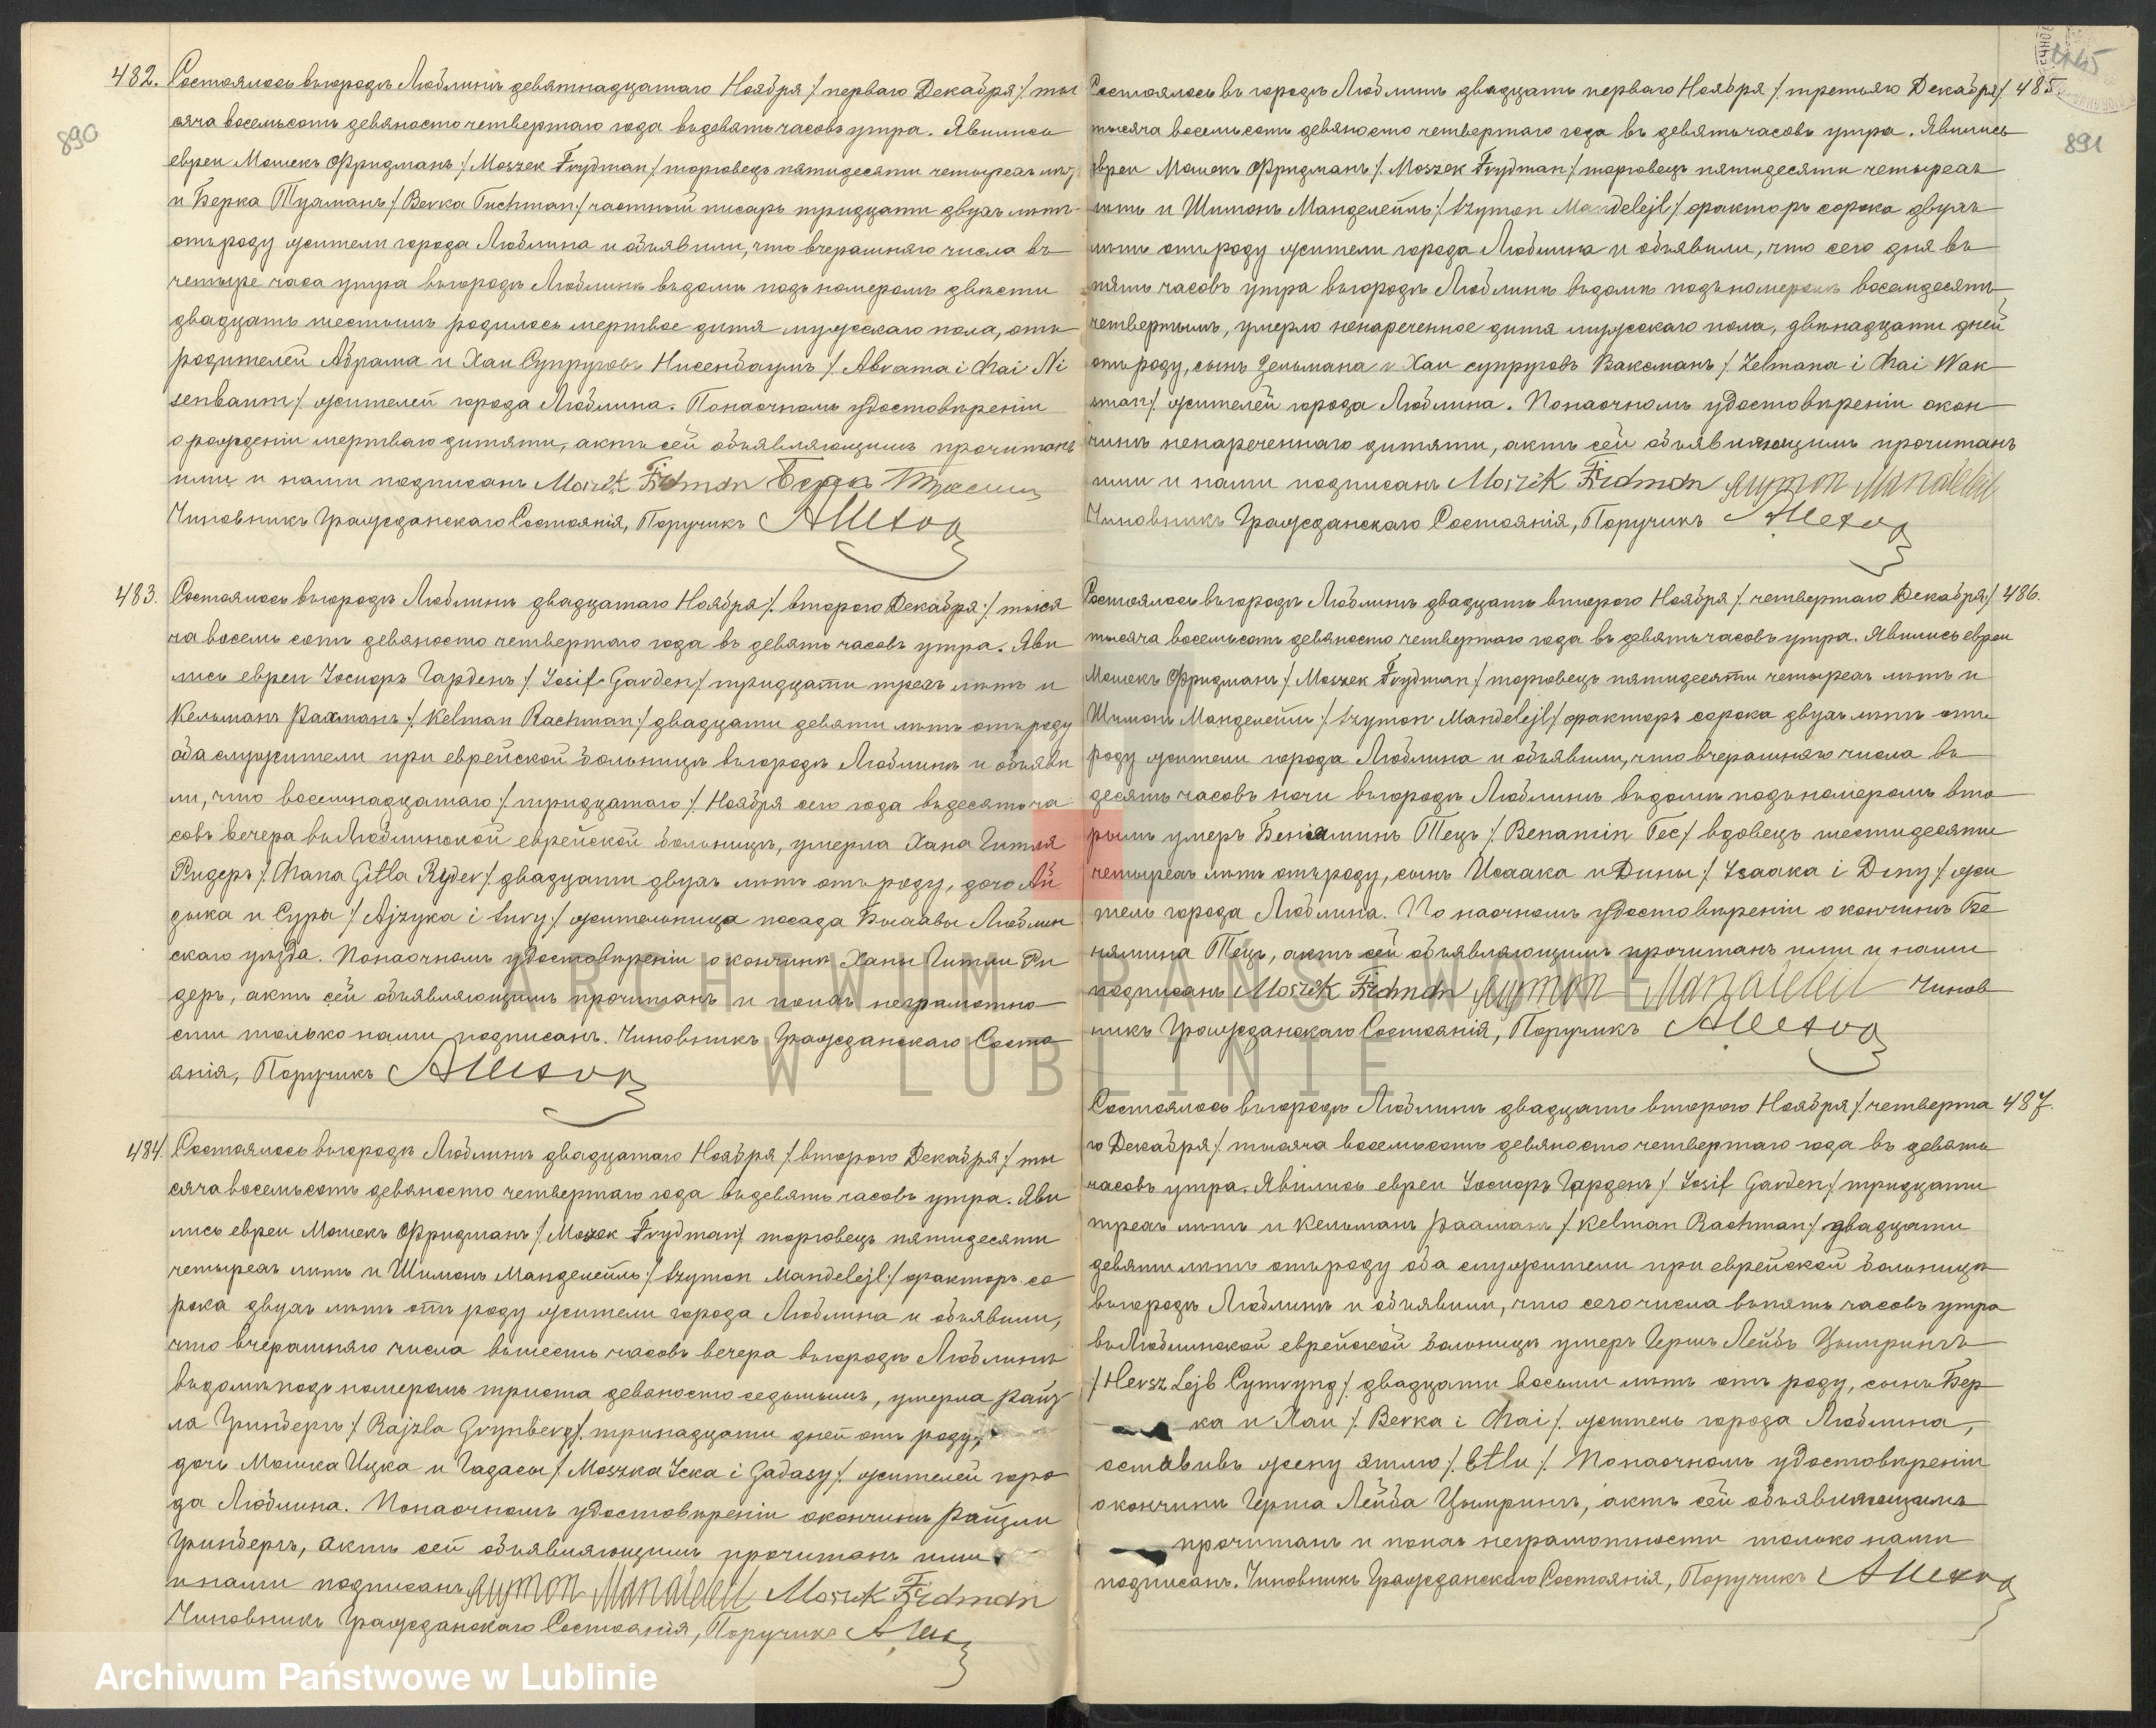 890
482. Состоялось въ городѣ Люблинѣ девятнадцатаго Ноября /: перваго Декабря :/ ты
сяча восемьсотъ девяносто четвертаго года въ девять часовъ утра. Явились
евреи Мошекъ Фридманъ /: Moszek Frydman :/ торговецъ пятидесяти четырехъ лѣтъ
и Берка Тухманъ /: Berka Tuchman :/ частный писарь тридцати двухъ лѣтъ
отъ роду жители города Люблина и объявили, что вчерашняго числа въ
четыре часа утра въ городѣ Люблинѣ въ домѣ подъ номеромъ двѣсти
двадцать шестымъ родилось мертвое дитя мужескаго пола, отъ
родителей Абрама и Хаи Супруговъ Нисенбаумъ /: Abrama i Chai Ni
senbaum :/ жителей города Люблина. По наочномъ удостовѣреніи
о рожденіи мертваго дитяти, актъ сей объявляющимъ прочитанъ
ими и нами подписанъ Moszek Fridman Берка
Чиновникъ Гражданскаго Состоянія, Поручикъ
483. Состоялось въ городѣ Люблинѣ двадцатаго Ноября /: второго Декабря :/ тыся
ча восемь сотъ девяносто четвертаго года въ девять часовъ утра. Яви
лись евреи Іосифъ Гарденъ /: Josif Garden :/ тридцати трехъ лѣтъ и
Кельманъ Рахманъ /: Kelman Rachman :/ двадцати девяти лѣтъ отъ роду
оба служители при еврейской больницѣ въ городѣ Люблинѣ и объяви
ли, что восемнадцатаго /: тридцатаго :/ Ноября сего года въ десять ча
совъ вечера въ Люблинской еврейской больницѣ, умерла Хана Гитля
Ридеръ /: Chana Gitla Ryder :/ двадцати двухъ лѣтъ отъ роду, дочь Ай
зыка и Суры /: Ajzyka i Sury :/ жительница посада Быхавы Люблин
скаго уѣзда. По наочномъ удостовѣреніи о кончинѣ Ханы Гитли Ри
деръ, актъ сей объявляющимъ прочитанъ и по ихъ неграмотно
сти только нами подписанъ. Чиновникъ Гражданскаго Состо
янія, Поручикъ
484. Состоялось въ городѣ Люблинѣ двадцатаго Ноября /: второго Декабря :/ ты
сяча восемьсотъ девяносто четвертаго года въ девять часовъ утра. Яви
лись евреи Мошекъ Фридманъ /: Moszek Frydman :/ торговецъ пятидесяти
четырехъ лѣтъ и Шимонъ Манделейль /: Szymon Mandelejl :/ факторъ со
рока двухъ лѣтъ отъ роду жители города Люблина и объявили,
что вчерашняго числа въ шесть часовъ вечера въ городѣ Люблинѣ
въ домѣ подъ номеромъ триста девяносто седьмымъ, умерла Райз
ла Гринбергъ /: Rajzla Grynberg :/ тринадцати дней отъ роду,
дочь Мошка Ицка и Гадасы /: Moszka Icka i Gadasy :/ жителей горо
да Люблина. По наочномъ удостовѣреніи о кончинѣ Райзли
Гринбергъ, актъ сей объявляющимъ прочитанъ ими
и нами подписанъ Szymon Mandeleil Moszek Fridman
Чиновникъ Гражданскаго Состоянія, Поручикъ
Состоялось въ городѣ Люблинѣ двадцать перваго Ноября /: третьяго Декабря :/ 485
891
тысяча восемьсотъ девяносто четвертаго года въ девять часовъ утра. Явились
евреи Мошекъ Фридманъ /: Moszek Frydman :/ торговецъ пятидесяти четырехъ
лѣтъ и Шимонъ Манделейль /: Szymon Mandelejl :/ факторъ сорока двухъ
лѣтъ отъ роду жители города Люблина и объявили, что сего дня въ
пять часовъ утра въ городѣ Люблинѣ въ домѣ подъ номеромъ восемдесятъ
четвертымъ, умерло ненареченное дитя мужескаго пола, двѣнадцати дней
отъ роду, сынъ Зельмана и Хаи супруговъ Ваксманъ /: Zelmana i Chai Wak
sman :/ жителей города Люблина. По наочномъ удостовѣреніи о кон
чинѣ ненареченнаго дитяти, актъ сей объявляющимъ прочитанъ
ими и нами подписанъ Moszek Fridman Szymon Mandeleil
Чиновникъ Гражданскаго Состоянія, Поручикъ
Состоялось въ городѣ Люблинѣ двадцать второго Ноября /: четвертаго Декабря :/ 486.
тысяча восемьсотъ девяносто четвертаго года въ девять часовъ утра. Явились евреи
Мошекъ Фридманъ /: Moszek Frydman :/ торговецъ пятидесяти четырехъ лѣтъ и
Шимонъ Манделейль /: Szymon Mandelejl :/ факторъ сорока двухъ лѣтъ отъ
роду жители города Люблина и объявили, что вчерашняго числа въ
десять часовъ ночи въ городѣ Люблинѣ въ домѣ подъ номеромъ вто
рымъ умеръ Беніаминъ Тецъ /: Benamin Tec :/ вдовецъ шестидесяти
четырехъ лѣтъ отъ роду, сынъ Исаака и Дины /: Isaaka i Diny :/ жи
тель города Люблина. По наочномъ удостовѣреніи о кончинѣ Бе
нямина Тецъ, актъ сей объявляющимъ прочитанъ ими и нами
подписанъ Moszek Fridman Szymon Mandeleil Чинов
никъ Гражданскаго Состоянія, Поручикъ
Состоялось въ городѣ Люблинѣ двадцать второго Ноября /: четверта 487.
го Декабря :/ тысяча восемьсотъ девяносто четвертаго года въ девять
часовъ утра. Явились евреи Іосифъ Гарденъ /: Josif Garden :/ тридцати
трехъ лѣтъ и Кельманъ Рахманъ /: Kelman Rachman :/ двадцати
девяти лѣтъ отъ роду оба служители при еврейской больницѣ
въ городѣ Люблинѣ и объявили, что сего числа въ пять часовъ утра
въ Люблинской еврейской больницѣ умеръ Гершъ Лейбъ Цымрингъ
/: Hersz Lejb Cymryng :/ двадцати восьми лѣтъ отъ роду, сынъ Бер
ка и Хаи /: Berka i Chai :/ житель города Люблина,
оставивъ жену Этлю /: Etlu :/. По наочномъ удостовѣреніи
о кончинѣ Герша Лейба Цымрингъ, актъ сей объявляющимъ
прочитанъ и по ихъ неграмотности только нами
подписанъ. Чиновникъ Гражданскаго Состоянія, Поручикъ
ARCHIWUM PAŃSTWOWE
W LUBLINIE
Archiwum Państwowe w Lublinie